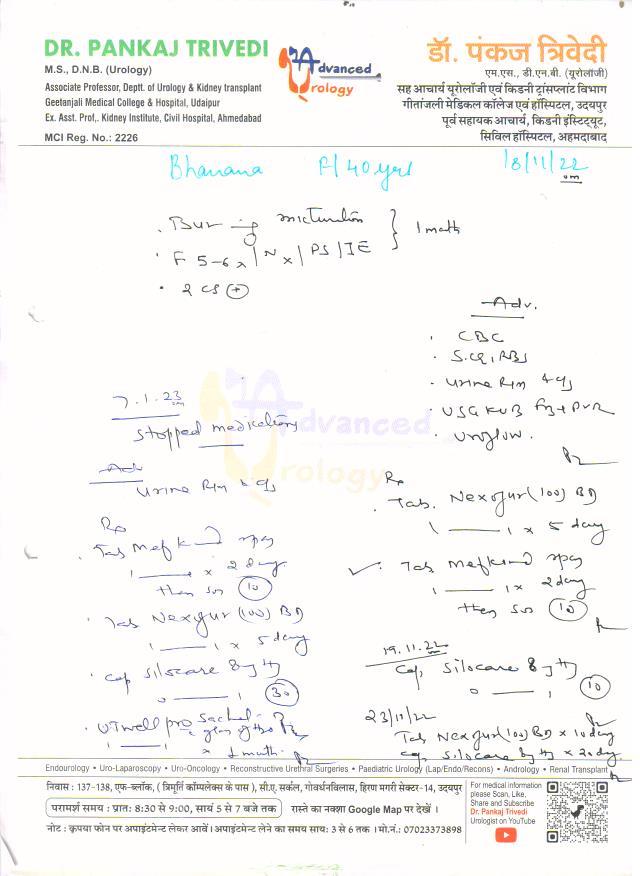 DR. PANKAJ TRIVEDI
M.S., D.N.B. (Urology)
Associate Professor, Deptt. of Urology & Kidney transplant
Geetanjali Medical College & Hospital, Udaipur
Ex. Asst. Prof,. Kidney Institute, Civil Hospital, Ahmedabad
MCI Reg. No.: 2226
Advanced
Urology
डॉ. पंकज त्रिवेदी
एम.एस., डी.एन.बी. (यूरोलॉजी)
सह आचार्य यूरोलॉजी एवं किडनी ट्रांसप्लांट विभाग
गीतांजली मेडिकल कॉलेज एवं हॉस्पिटल, उदयपुर
पूर्व सहायक आचार्य, किडनी इंस्टिट्यूट,
सिविल हॉस्पिटल, अहमदाबाद
F/40 yrs
18/11/22
micturition
F 5-6x/Nx/
1 month
2 CS +
Adv.
CBC
Urine R/m
USG KUB
Uroflow.
Rx
Tab. (100) BD
1 —— 1 x 5 day
Tab
1 —— 1 x 2 day
then sos 10
19.11.22
Cap. Silocare 8
0 —— 1 10
23/11/22
Tab (100) BD x 10 day
Cap Silocare 8 x 20 day
7.1.23
Stopped medications
Adv
Urine R/m
Rx
Tab
1 —— 1 x 2 day
then sos 10
Tab (100) BD
1 —— 1 x 5 day
Cap Silocare 8
0 —— 1 30
Utwell pro Sachet
1 —— 1 x 1 month
Advanced
Urology
Endourology • Uro-Laparoscopy • Uro-Oncology • Reconstructive Urethral Surgeries • Paediatric Urology (Lap/Endo/Recons) • Andrology • Renal Transplant
निवास : 137-138, एफ-ब्लॉक, ( त्रिमूर्ति कॉम्पलेक्स के पास ), सी.ए. सर्कल, गोवर्धनविलास, हिरण मगरी सेक्टर-14, उदयपुर
परामर्श समय : प्रात: 8:30 से 9:00, सायं 5 से 7 बजे तक रास्ते का नक्शा Google Map पर देखें ।
नोट : कृपया फोन पर अपाइंटमेन्ट लेकर आवें। अपाइंटमेन्ट लेने का समय साय: 3 से 6 तक । मो.नं.: 07023373898
For medical information
please Scan, Like,
Share and Subscribe
Dr. Pankaj Trivedi
Urologist on YouTube